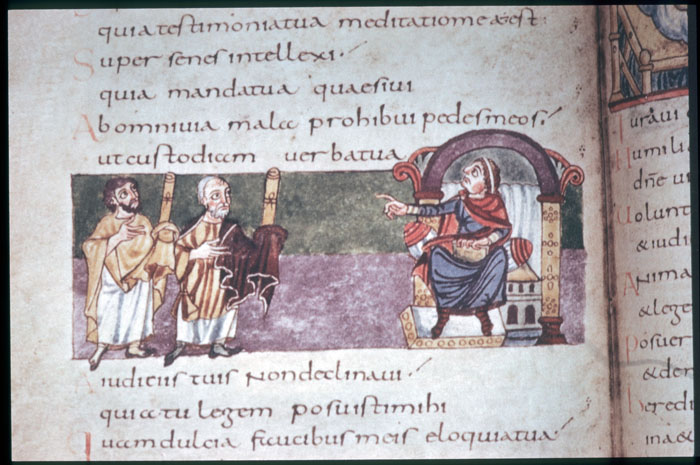 quia testimonia tua meditatio me &est·
Super senes intellexi·
quia mandata tua quaesivi
Ab omni via mala prohibui pedes meos·
ut custodiam verba tua
A iudiciis tuis non declinavi·
quia tu legem posuisti mihi
Quam dulcia faucibus meis eloquia tua
Iuravi
Humilia
dn̄e vi
Volunt
&iudi
Anima
&lege
Posuer
&de
Heredi
ina&